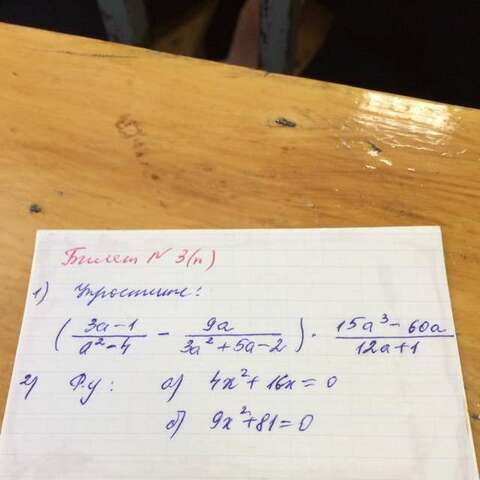 Билет № 3(п)
1) Упростите:
( (3a-1)/(a²-4) - 9a/(3a²+5a-2) ) · (15a³-60a)/(12a+1)
2) Р.у: а) 4x²+16x=0
б) 9x²+81=0